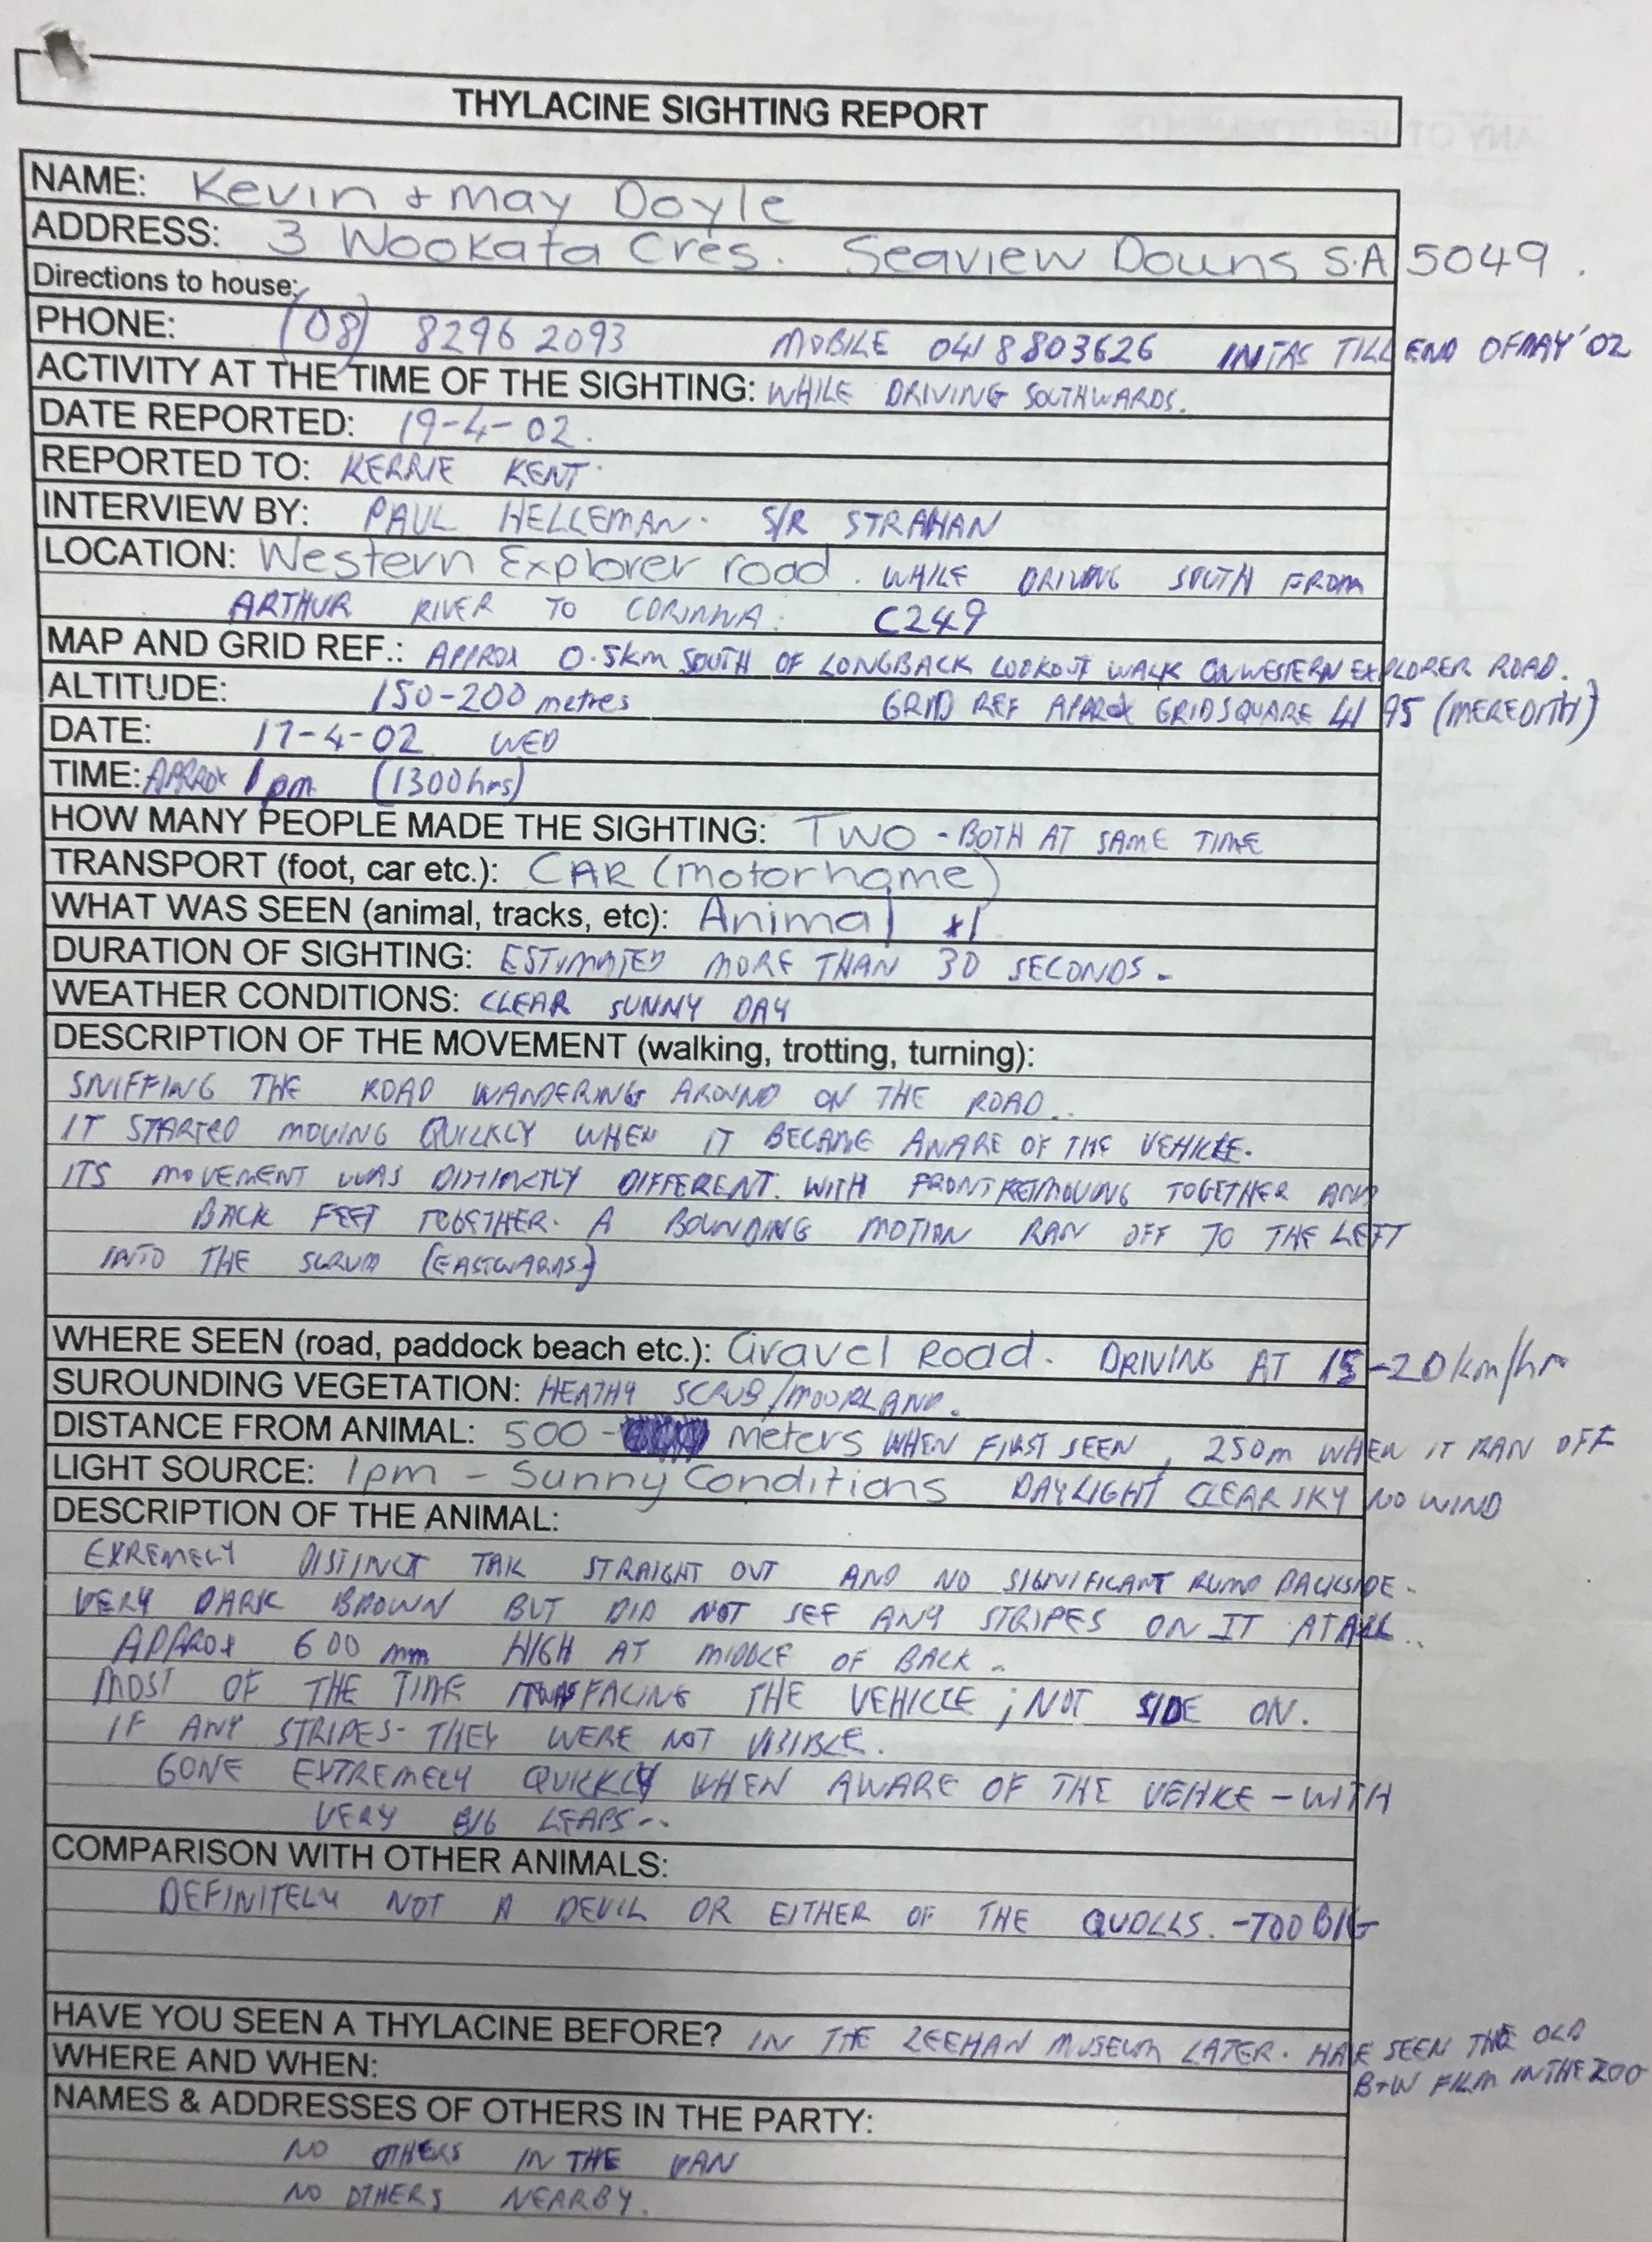 THYLACINE SIGHTING REPORT
NAME: Kevin + May Doyle
ADDRESS: 3 Wookata Cres. Seaview Downs S.A 5049.
Directions to house:
PHONE: (08) 8296 2093 MOBILE 0418803626 IN TAS TILL END OF MAY '02
ACTIVITY AT THE TIME OF THE SIGHTING: WHILE DRIVING SOUTHWARDS.
DATE REPORTED: 19-4-02.
REPORTED TO: KERRIE KENT.
INTERVIEW BY: PAUL HELLEMAN. S/R STRAHAN
LOCATION: Western Explorer road. WHILE DRIVING SOUTH FROM
ARTHUR RIVER TO CORINNA. C249
MAP AND GRID REF.: APPROX 0.5km SOUTH OF LONGBACK LOOKOUT WALK ON WESTERN EXPLORER ROAD.
ALTITUDE: 150-200 metres GRID REF APPROX GRIDSQUARE 41 95 (MEREDITH)
DATE: 17-4-02 WED
TIME: APPROX 1pm (1300hrs)
HOW MANY PEOPLE MADE THE SIGHTING: TWO - BOTH AT SAME TIME
TRANSPORT (foot, car etc.): CAR (motorhome)
WHAT WAS SEEN (animal, tracks, etc): Animal x1
DURATION OF SIGHTING: ESTIMATED MORE THAN 30 SECONDS -
WEATHER CONDITIONS: CLEAR SUNNY DAY
DESCRIPTION OF THE MOVEMENT (walking, trotting, turning):
SNIFFING THE ROAD WANDERING AROUND ON THE ROAD..
IT STARTED MOVING QUICKLY WHEN IT BECAME AWARE OF THE VEHICLE.
ITS MOVEMENT WAS DISTINCTLY DIFFERENT. WITH FRONT FEET MOVING TOGETHER AND
BACK FEET TOGETHER. A BOUNDING MOTION RAN OFF TO THE LEFT
INTO THE SCRUB (EASTWARDS)
WHERE SEEN (road, paddock beach etc.): Gravel Road. DRIVING AT 15-20km/hr
SUROUNDING VEGETATION: HEATHY SCRUB/MOORLAND.
DISTANCE FROM ANIMAL: 500 - meters WHEN FIRST SEEN, 250m WHEN IT RAN OFF
LIGHT SOURCE: 1pm - Sunny Conditions DAYLIGHT CLEAR SKY NO WIND
DESCRIPTION OF THE ANIMAL:
EXREMELY DISTINCT TAIL STRAIGHT OUT AND NO SIGNIFICANT RUMP BACKSIDE -
VERY DARK BROWN BUT DID NOT SEE ANY STRIPES ON IT AT ALL..
APPROX 600 mm HIGH AT MIDDLE OF BACK -
MOST OF THE TIME IT WAS FACING THE VEHICLE; NOT SIDE ON.
IF ANY STRIPES - THEY WERE NOT VISIBLE.
GONE EXTREMELY QUICKLY WHEN AWARE OF THE VEHICLE - WITH
VERY BIG LEAPS--
COMPARISON WITH OTHER ANIMALS:
DEFINITELY NOT A DEVIL OR EITHER OF THE QUOLLS. - TOO BIG
HAVE YOU SEEN A THYLACINE BEFORE? IN THE ZEEHAN MUSEUM LATER. HAVE SEEN THE OLD
B+W FILM IN THE ZOO
WHERE AND WHEN:
NAMES & ADDRESSES OF OTHERS IN THE PARTY:
NO OTHERS IN THE VAN
NO OTHERS NEARBY.